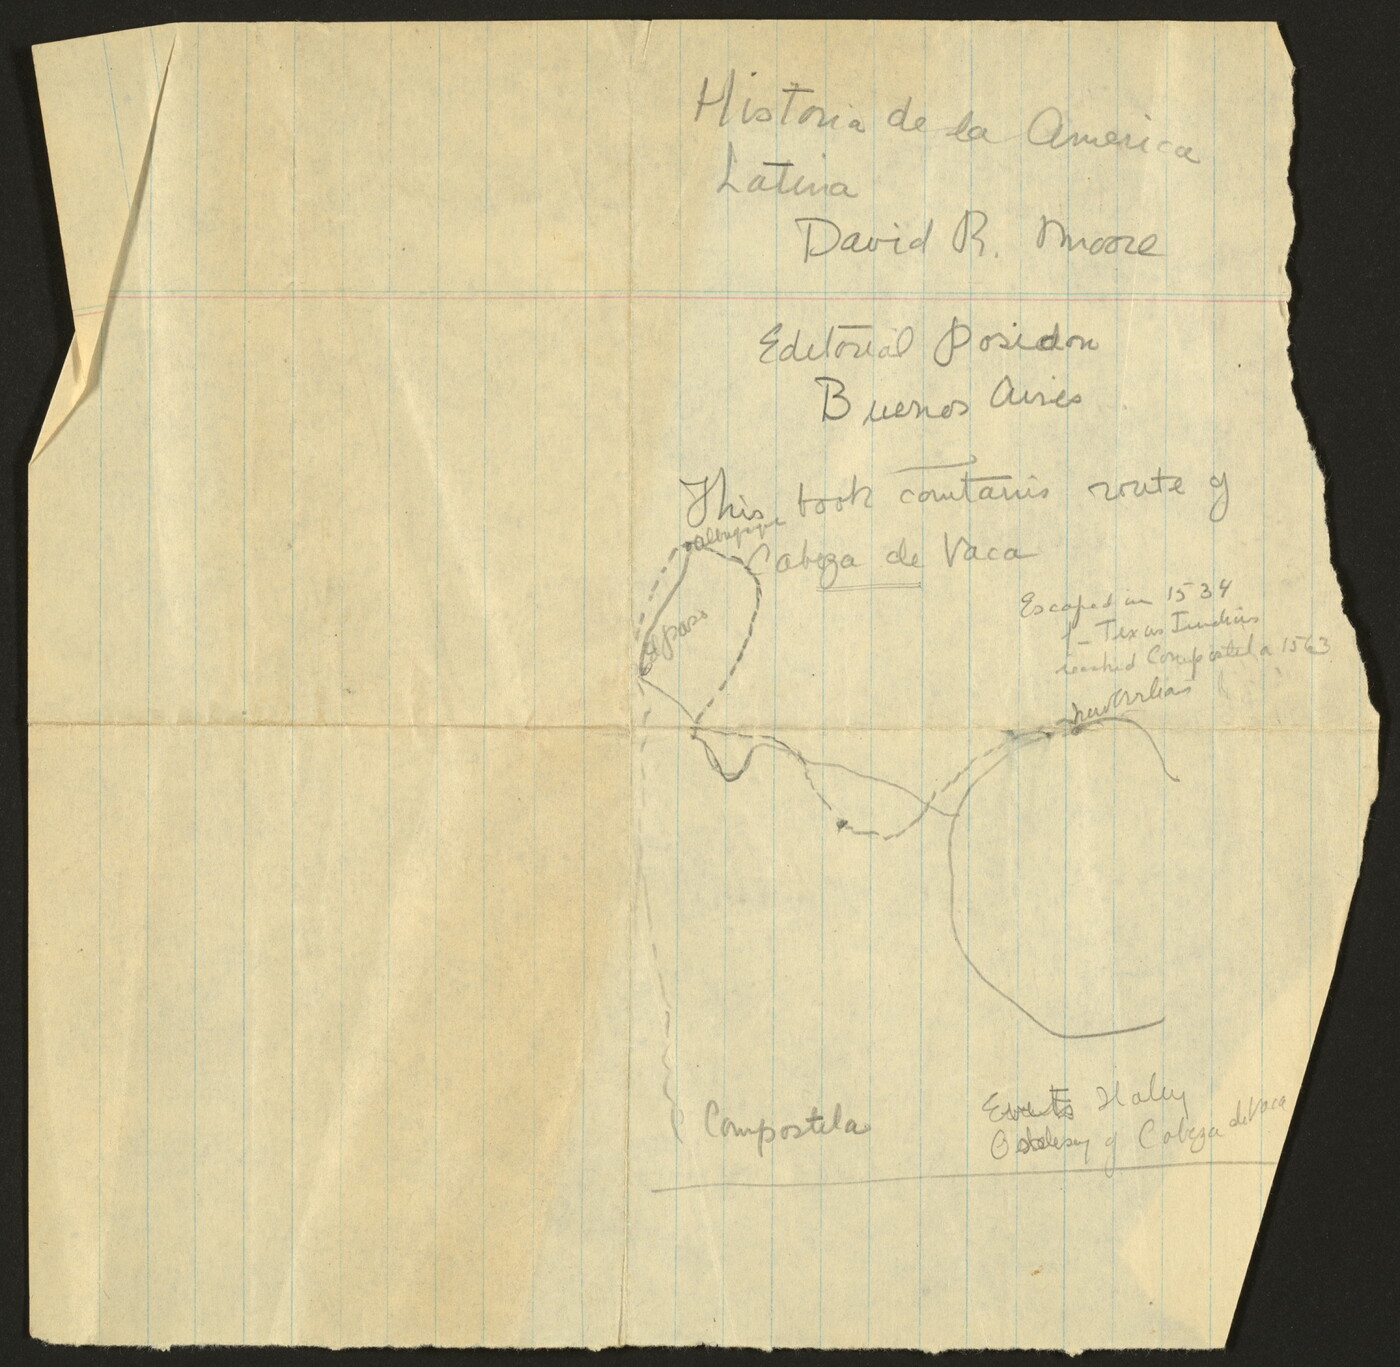 Historia de la America
Latina
David R. Moore
Editorial Posidon
Buenos Aires
This book contains route of
Cabeza de Vaca
el paso
Escaped in 1534
Texas Indians
reached Compostela 1563
New Orleans
Compostela
Events Haley
Odyssey of Cabeza de Vaca